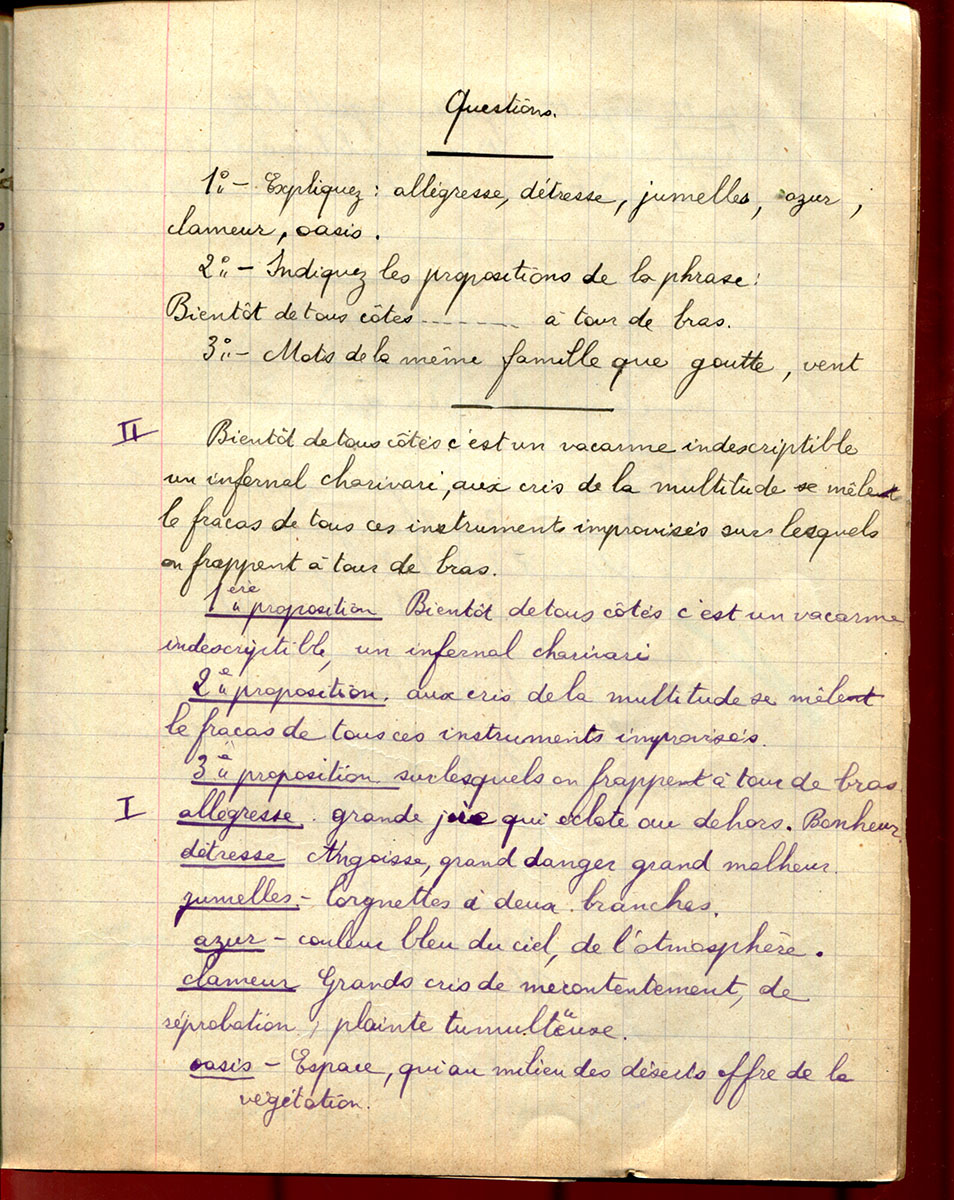 Questions.
1° – Expliquez : allégresse, détresse, jumelles, azur,
clameur, oasis.
2° – Indiquez les propositions de la phrase :
Bientôt de tous côtés -------- à tour de bras.
3° – Mots de la même famille que goutte, vent
II Bientôt de tous côtés c'est un vacarme indescriptible
un infernal charivari, aux cris de la multitude se mêlent
le fracas de tous ces instruments improvisés sur lesquels
on frappent à tour de bras.
1ère proposition Bientôt de tous côtés c'est un vacarme
indescriptible, un infernal charivari
2e proposition. aux cris de la multitude se mêlent
le fracas de tous ces instruments improvisés.
3e proposition sur lesquels on frappent à tour de bras
I allégresse. grande joie qui éclate au dehors. Bonheur
détresse Angoisse, grand danger grand malheur.
jumelles. – lorgnettes à deux branches.
azur – couleur bleu du ciel, de l'atmosphère.
clameur Grands cris de mecontentement, de
réprobation, plainte tumultueuse.
oasis – Espace, qui au milieu des déserts offre de la
végétation.